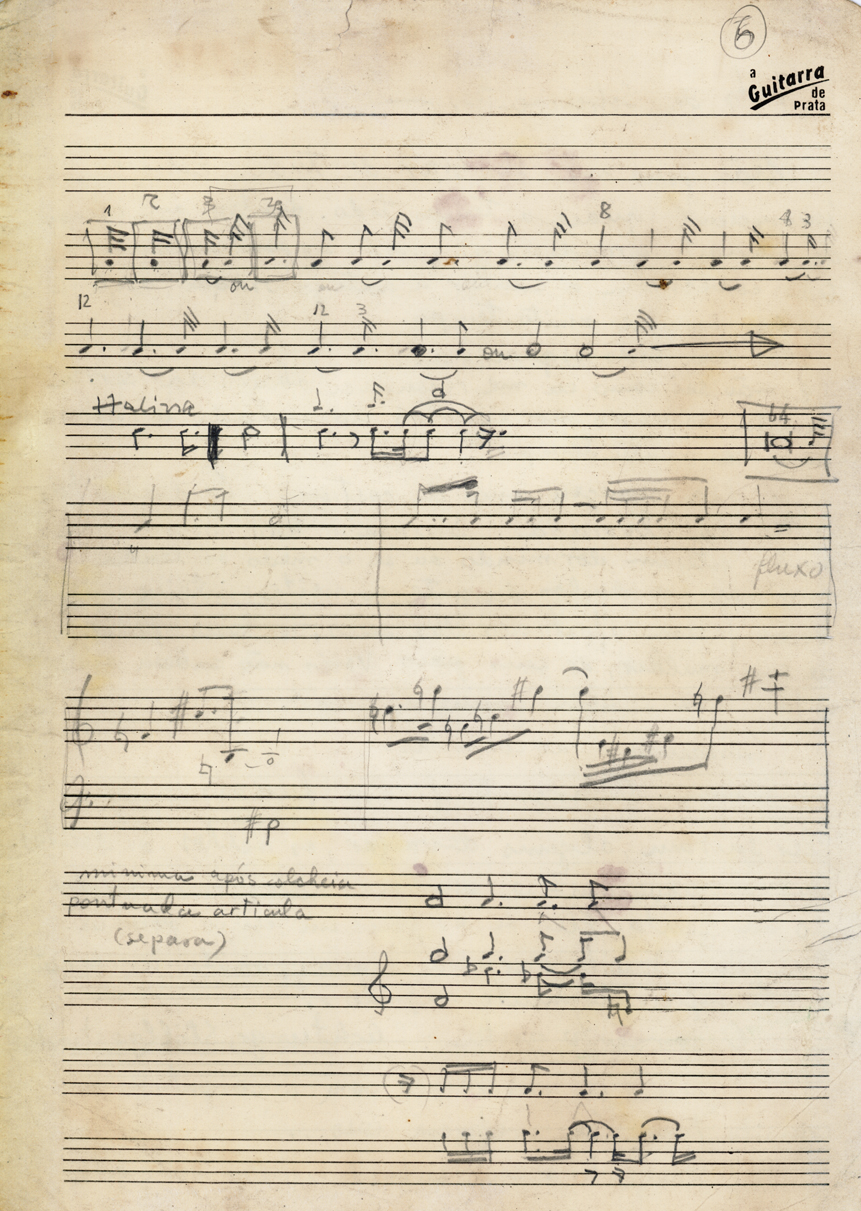 6
a
Guitarra
de
Prata
1 2 3
8 8 3
ou
12 12 3
ou
64
fluxo
minima após colcheia
pontuada articula
(separa)